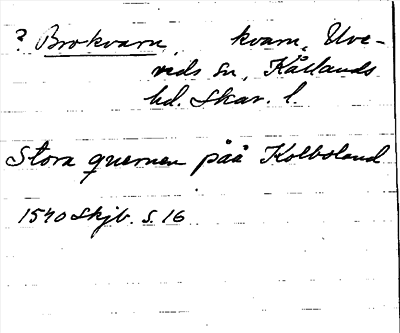 ? Brokvarn, kvarn, Uve-
reds sn, Kållands
hd. Skar. l.
Stora quernen påå Kolboland
1540 Skjb. S. 16